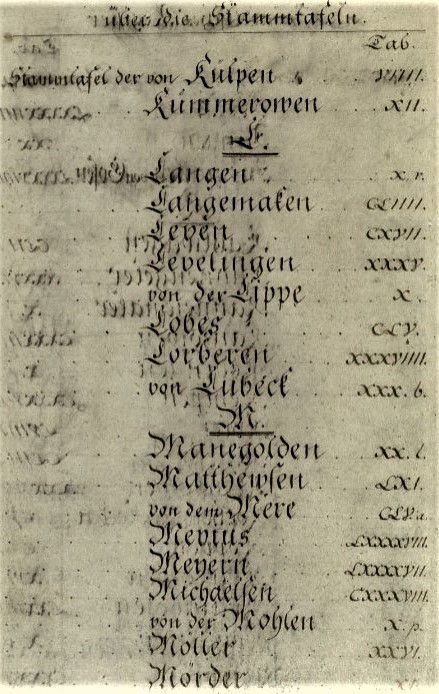 über die Stammtafeln.
Tab.
Stammtafel der von Külpen VIIII.
Kümmerowen XII.
L.
Langen X. r.
Langemaken CLIIII.
Leven CXVII.
Levelingen XXXV.
von der Lippe X.
Lobes CLV.
Lorberen XXXVIIII.
von Lübeck XXX. b.
M.
Manegolden XX. l.
Matthewsen LXI.
von dem Mere CLV.a.
Mevius LXXXXVIII.
Meyern LXXXXVII.
Michaelsen CXXXVIII.
von der Mohlen X. p.
Möller XXVI.
Mörder